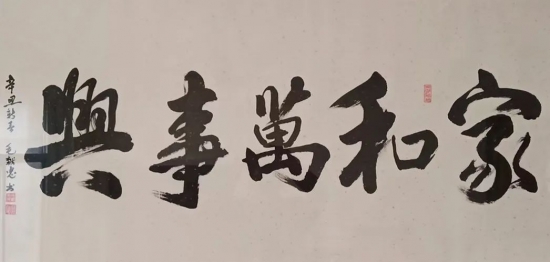 家和萬事興
辛丑新春 毛 忠书